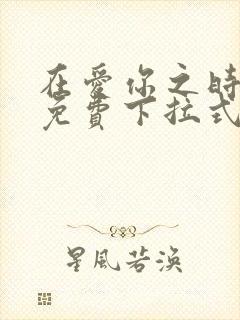 在愛你之時
免費下拉式
星風若渙